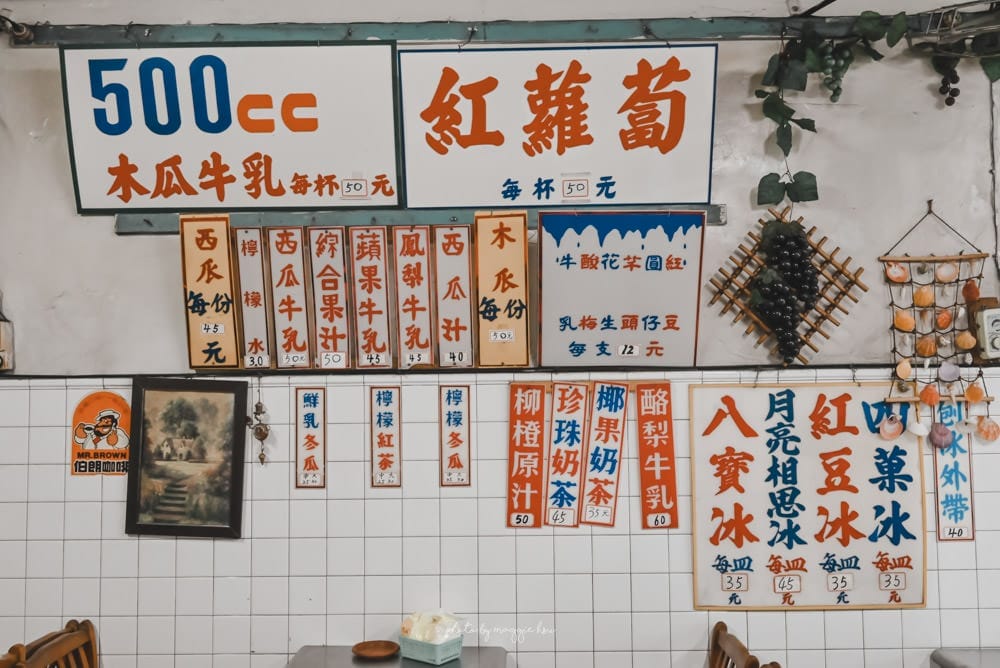 500cc
木瓜牛乳每杯50元
紅蘿蔔
每杯50元
西瓜每份45元
檸檬水30
西瓜牛乳50元
綜合果汁50
蘋果牛乳45
鳳梨牛乳45
西瓜汁40
木瓜每份50元
牛酸花芋圓紅
乳梅生頭仔豆
每支12元
MR.BROWN
伯朗咖啡
鮮乳冬瓜
檸檬紅茶
檸檬冬瓜
柳橙原汁50
珍珠奶茶45
椰果奶茶35元
酪梨牛乳60
八寶冰每皿35元
月亮相思冰每皿45元
紅豆冰每皿35元
四菓冰每皿35元
刨冰外帶40
photo by maggie hsu